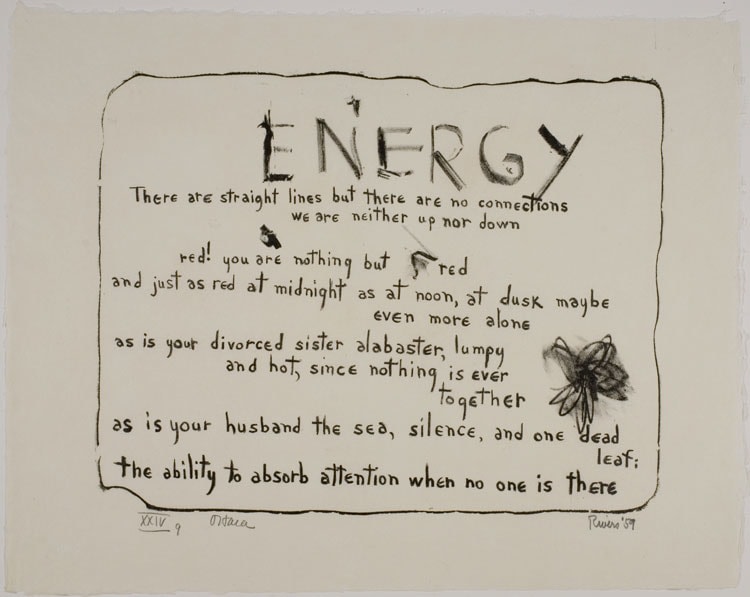 ENERGY
There are straight lines but there are no connections
we are neither up nor down
red! you are nothing but red
and just as red at midnight as at noon, at dusk maybe
even more alone
as is your divorced sister alabaster, lumpy
and hot, since nothing is ever
together
as is your husband the sea, silence, and one dead
leaf:
the ability to absorb attention when no one is there
XXIV 9 O'Hara Rivers '59